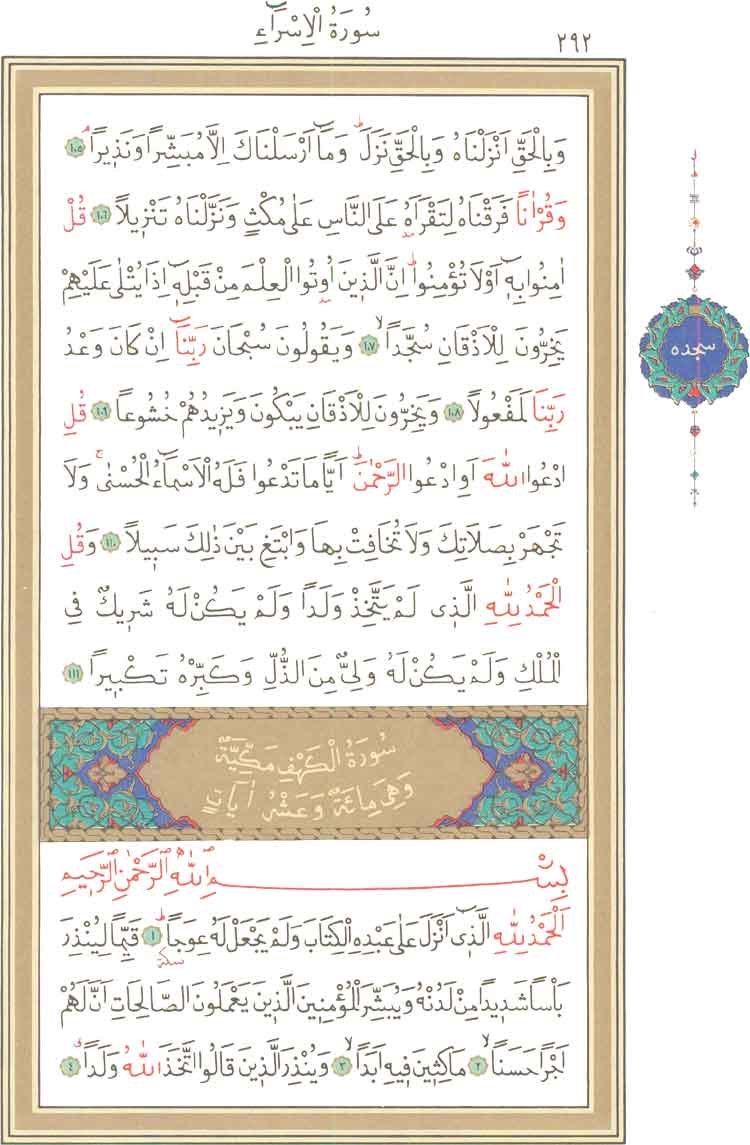 سُورَةُ الْاِسْرَٓاءِ
٢٩٢
وَبِالْحَقِّ اَنْزَلْنَاهُ وَبِالْحَقِّ نَزَلَۜ وَمَٓا اَرْسَلْنَاكَ اِلَّا مُبَشِّراً وَنَذ۪يراًۢ ١٠٥
وَقُرْاٰناً فَرَقْنَاهُ لِتَقْرَاَهُ عَلَى النَّاسِ عَلٰى مُكْثٍ وَنَزَّلْنَاهُ تَنْز۪يلاً ١٠٦ قُلْ
اٰمِنُوا بِه۪ٓ اَوْ لَا تُؤْمِنُواۜ اِنَّ الَّذ۪ينَ اُو۫تُوا الْعِلْمَ مِنْ قَبْلِه۪ٓ اِذَا يُتْلٰى عَلَيْهِمْ
يَخِرُّونَ لِلْاَذْقَانِ سُجَّداًۙ ١٠٧ وَيَقُولُونَ سُبْحَانَ رَبِّنَٓا اِنْ كَانَ وَعْدُ
رَبِّنَا لَمَفْعُولاً ١٠٨ وَيَخِرُّونَ لِلْاَذْقَانِ يَبْكُونَ وَيَز۪يدُهُمْ خُشُوعاً ١٠٩ قُلِ
ادْعُوا اللّٰهَ اَوِ ادْعُوا الرَّحْمٰنَۜ اَياًّ مَا تَدْعُوا فَلَهُ الْاَسْمَٓاءُ الْحُسْنٰىۚ وَلَا
تَجْهَرْ بِصَلَاتِكَ وَلَا تُخَافِتْ بِهَا وَابْتَغِ بَيْنَ ذٰلِكَ سَب۪يلاً ١١٠ وَقُلِ
الْحَمْدُ لِلّٰهِ الَّذ۪ي لَمْ يَتَّخِذْ وَلَداً وَلَمْ يَكُنْ لَهُ شَر۪يكٌ فِي
الْمُلْكِ وَلَمْ يَكُنْ لَهُ وَلِيٌّ مِنَ الذُّلِّ وَكَبِّرْهُ تَكْب۪يراً ١١١
سجده
سُورَةُ الْكَهْفِ مَكِّيَّةٌ
وَهِيَ مِائَةٌ وَعَشْرُ اٰيَاتٍ
بِسْمِ اللّٰهِ الرَّحْمٰنِ الرَّح۪يمِ
اَلْحَمْدُ لِلّٰهِ الَّذ۪ٓي اَنْزَلَ عَلٰى عَبْدِهِ الْكِتَابَ وَلَمْ يَجْعَلْ لَهُ عِوَجاًۜ ١ قَيِّماً لِيُنْذِرَ
سكته
بَأْساً شَد۪يداً مِنْ لَدُنْهُ وَيُبَشِّرَ الْمُؤْمِن۪ينَ الَّذ۪ينَ يَعْمَلُونَ الصَّالِحَاتِ اَنَّ لَهُمْ
اَجْراً حَسَناًۙ ٢ مَاكِث۪ينَ ف۪يهِ اَبَداًۙ ٣ وَيُنْذِرَ الَّذ۪ينَ قَالُوا اتَّخَذَ اللّٰهُ وَلَداًۗ ٤